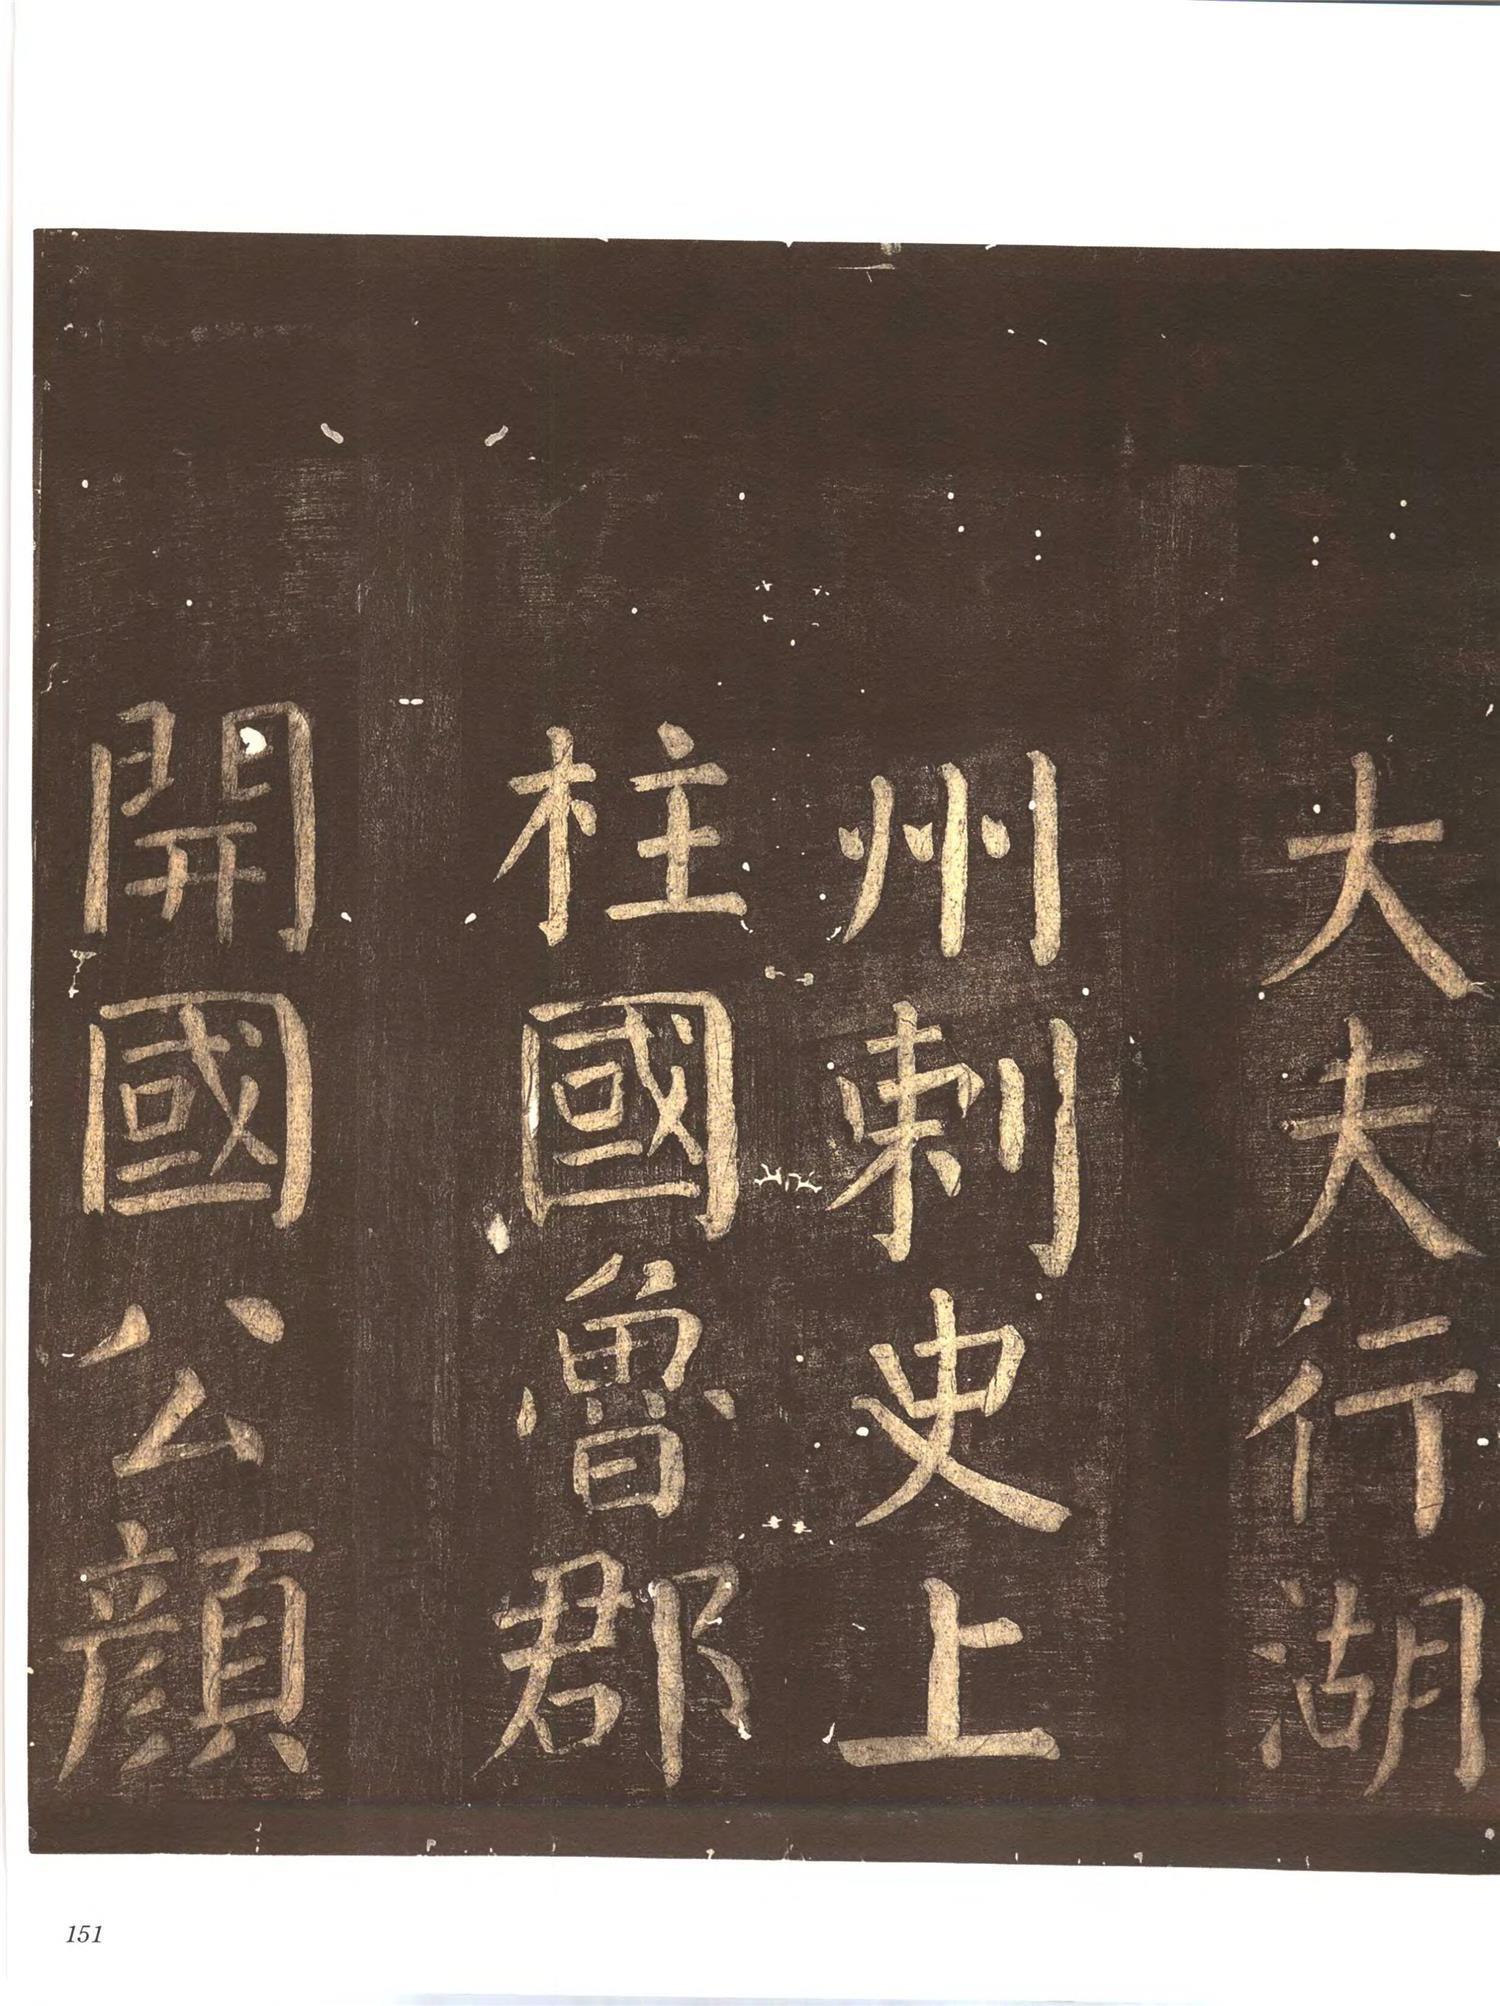 大夫行湖
州刺史上
柱國魯郡
開國公顏
151